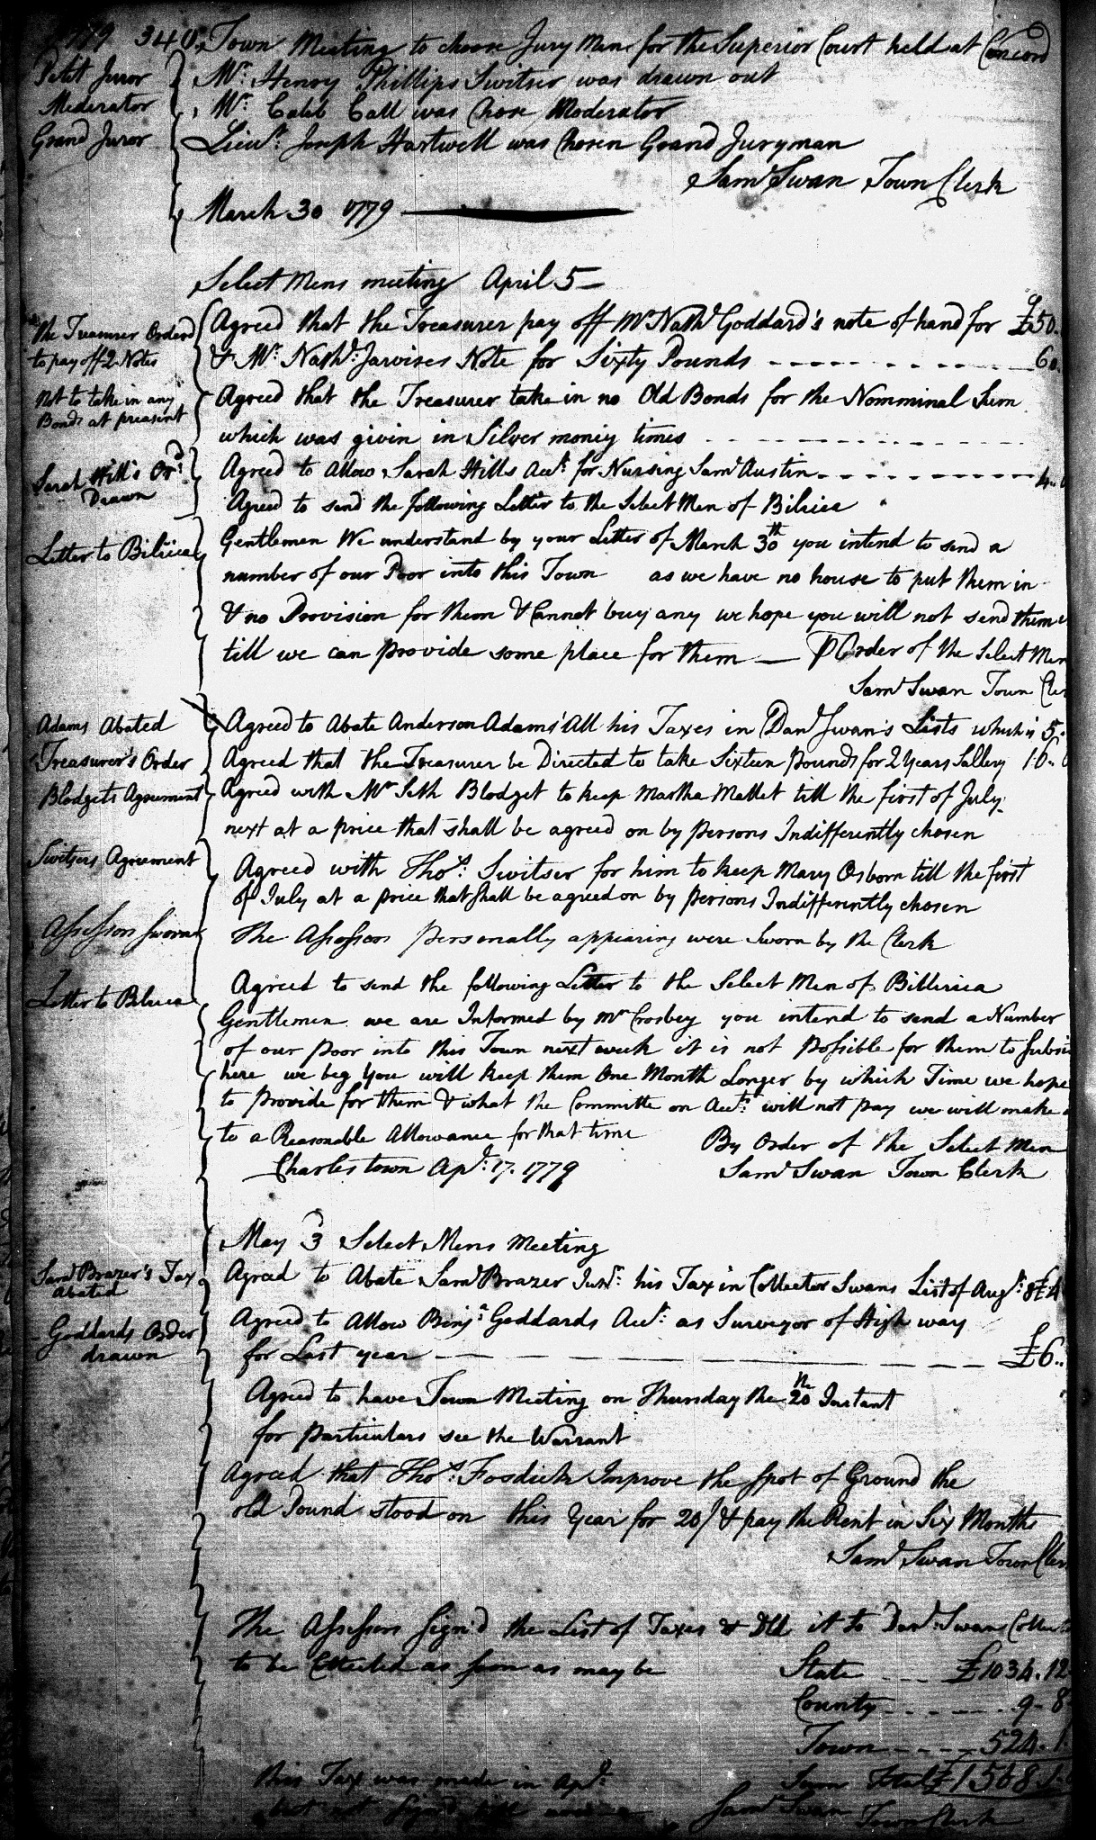 1779 340. Town Meeting to choose Jury Men for the Superior Court held at Concord
Petit Juror Mr. Henry Phillips Switser was drawn out
Moderator Mr. Caleb Call was Chose Moderator
Grand Juror Lieut. Joseph Hartwell was Chosen Grand Juryman
Saml Swan Town Clerk
March 30 1779
Select Mens meeting April 5
the Treasurer Orderd Agreed that the Treasurer pay off Mr Nathl Goddard's note of hand for £50.
to pay off 2 Notes & Mr. Nathl. Jarvises Note for Sixty Pounds 60.
Not to take in any Agreed that the Treasurer take in no Old Bonds for the Nomminal Sum
Bonds at preasent which was givin in Silver money times
Sarah Hill's Ord. Agreed to Allow Sarah Hills Acct. for Nursing Saml Austin 4.
Drawn Agreed to send the following Letter to the Select Men of Bilrica
Letter to Bilrica Gentlemen We understand by your Letter of March 30th you intend to send a
number of our Poor into this Town as we have no house to put them in
& no Provision for them & Cannot buy any we hope you will not send them
till we can provide some place for them P Order of the Select Men
Saml Swan Town Cler
Adams Abated Agreed to Abate Anderson Adams' All his Taxes in Danl Swan's Lists which is 5.
Treasurer's Order Agreed that the Treasurer be Directed to take Sixteen Pounds for 2 Years Sallery 16.
Blodgets Agreement Agreed with Mr Seth Blodget to keep Martha Mallet till the first of July
next at a price that shall be agreed on by persons Indifferently chosen
Switsers Agreement Agreed with Thos. Switser for him to keep Mary Osborn till the first
of July at a price that shall be agreed on by persons Indifferently chosen
Assessors Sworn The Assessors personally appearing were Sworn by the Clerk
Letter to Bilrica Agreed to send the following Letter to the Select Men of Billirica
Gentlemen we are Informed by Mr Crosbey you intend to send a Number
of our poor into this Town next week it is not possible for them to Subsi
here we beg you will keep them One Month Longer by which Time we hope
to provide for them & what the Committe on Acct. will not pay we will make
to a Reasonable Allowance for that time By Order of the Select Men
Charlestown Apl. 17. 1779 Saml Swan Town Clerk
May 3 Select Mens Meeting
Saml Brazer's Tax Agreed to Abate Saml Brazer Junr. his Tax in Collector Swans List of Augt. 8 £4
abated
Agreed to Allow Benja. Goddards Acct. as Surveyor of High ways
Goddards Order for Last year £6..
drawn
Agreed to have Town Meeting on Thursday the 20th Instant
for particulars see the Warrant
Agreed that Thos. Fosdick Improve the spot of Ground the
old Pound stood on this Year for 20/ & pay the Rent in Six Months
Saml Swan Town Cler
The Assessors sign'd the List of Taxes & Dld it to Danl Swan Collect
to be Collected as soon as may be State £1034.12
County 9.8
Town 524.1
this Tax was made in Apl. Sum Total £1568.1
but not sign'd till Saml Swan Town Clerk